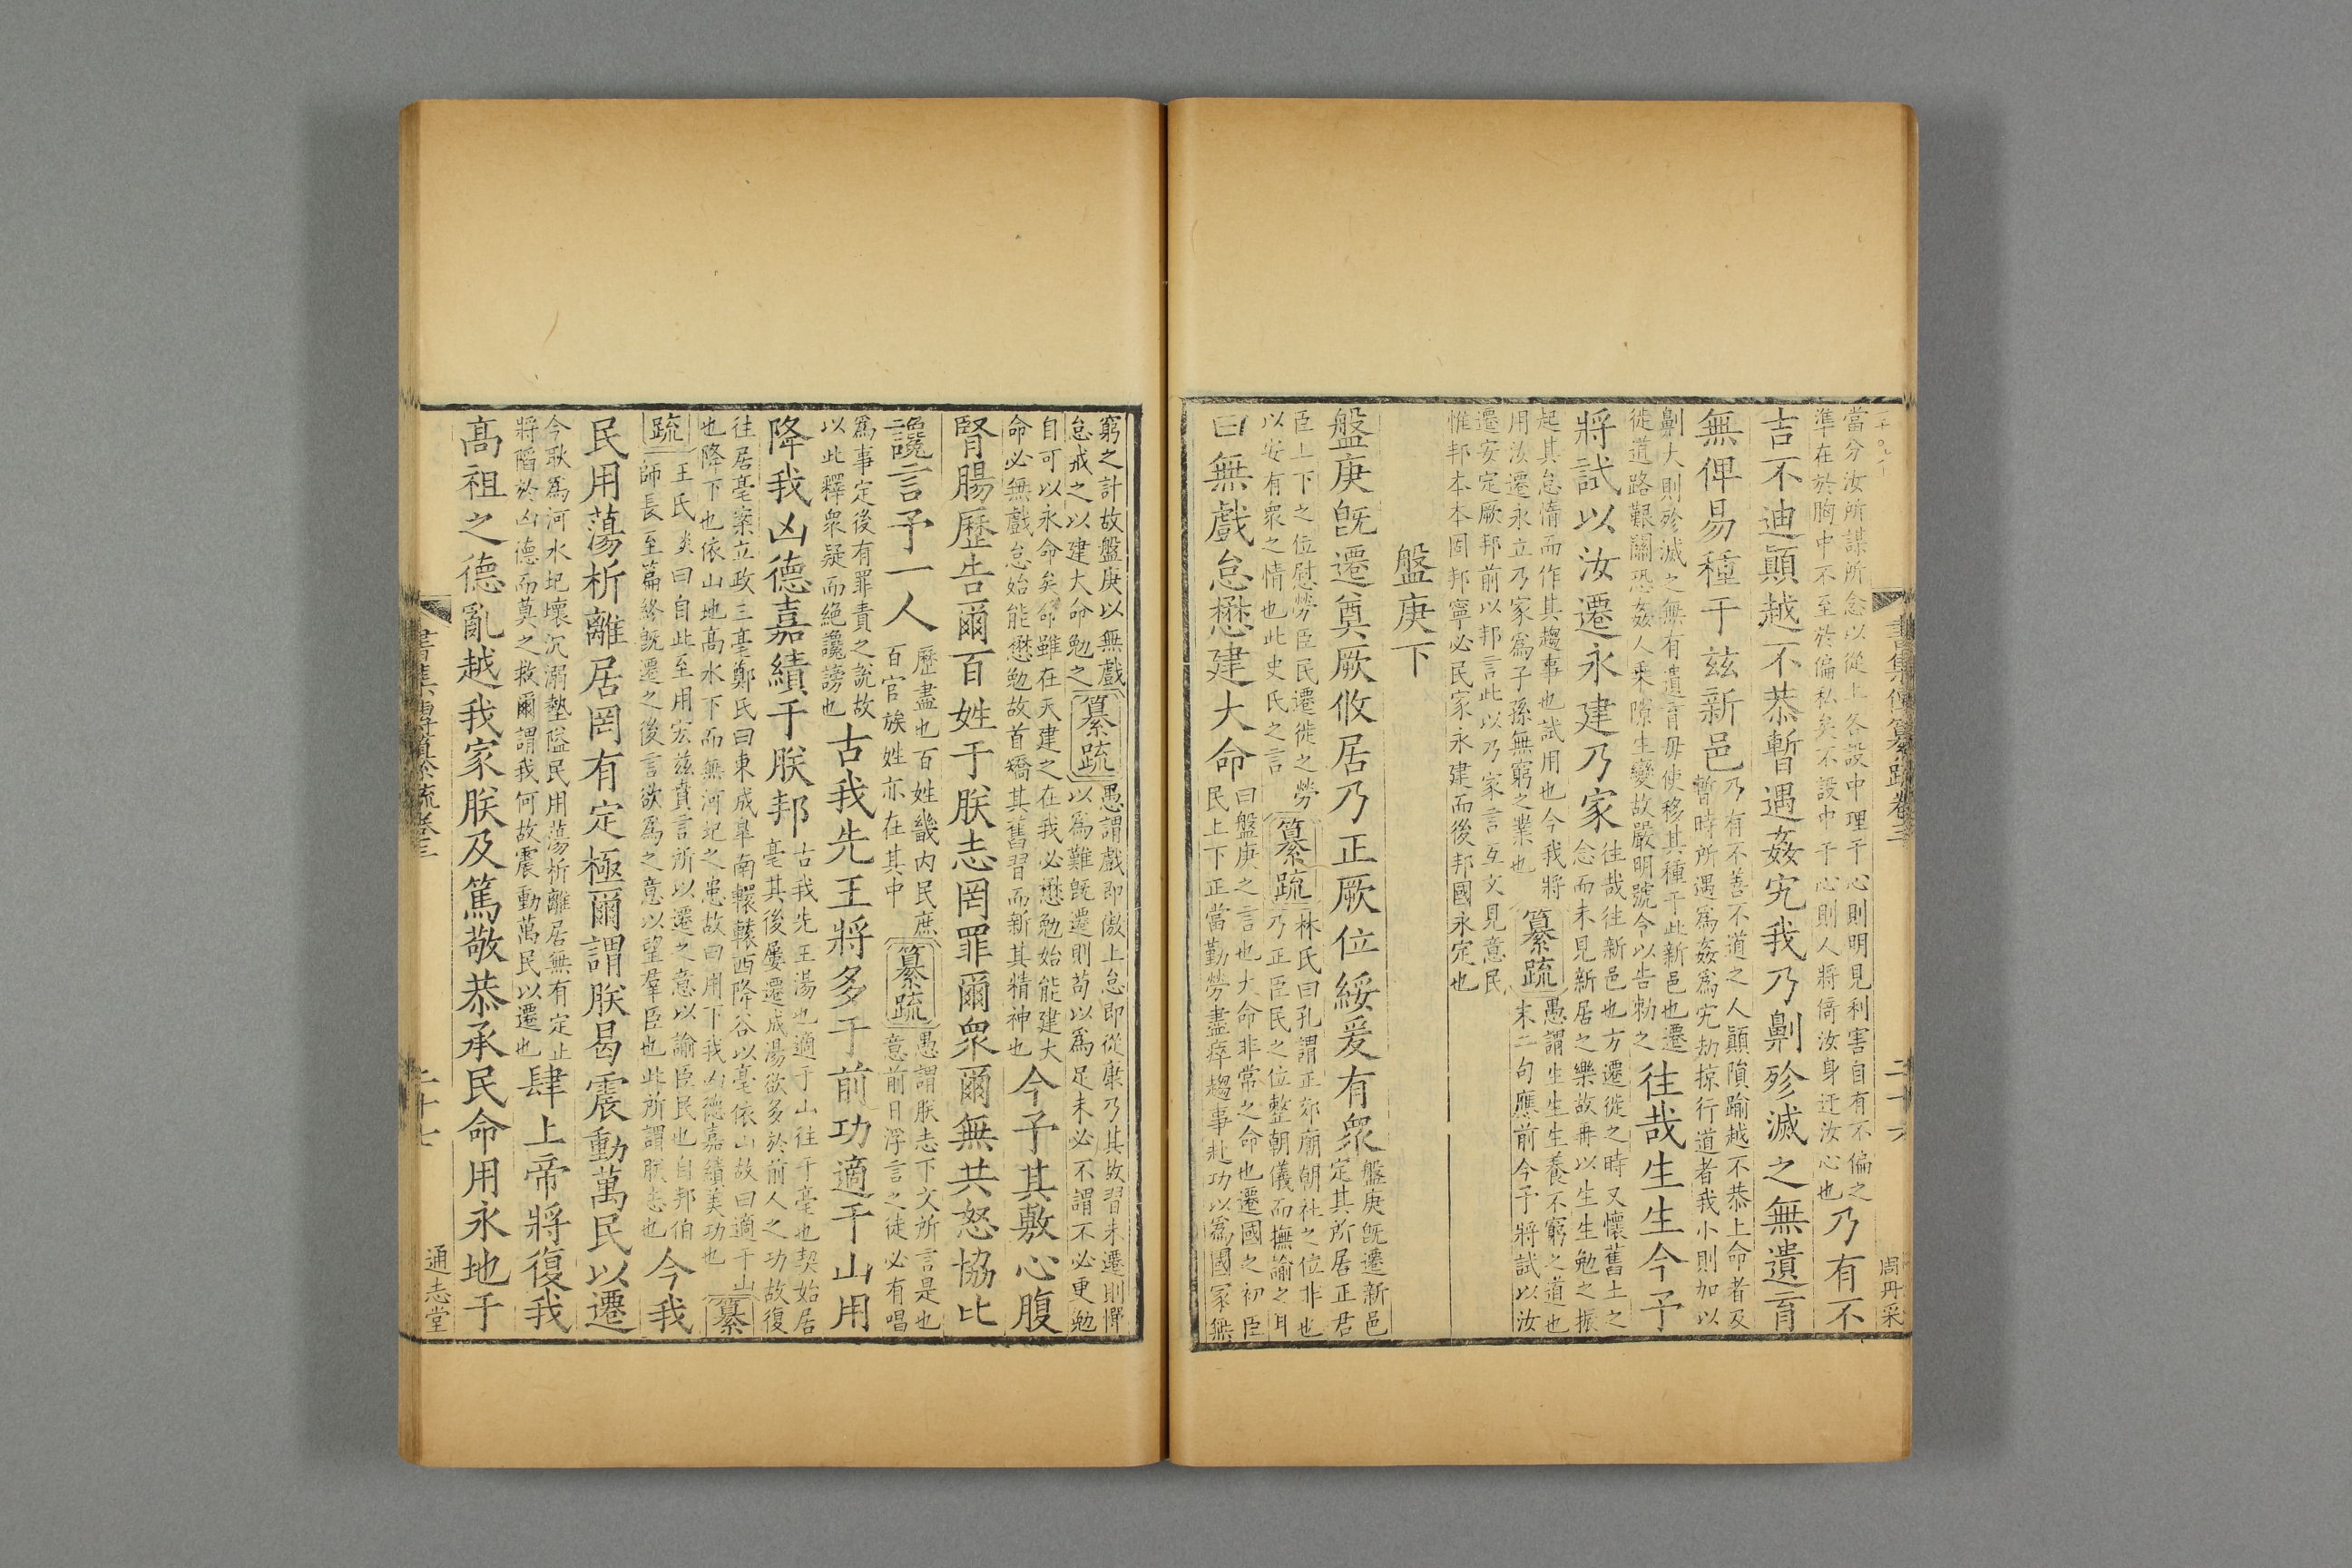 當分汝所謀所念以從上各設中理于心則明見利害自有不偏之
準在於胸中不至於偏私矣不設中于心則人將倚汝身迂汝心也
乃有不
吉不迪顛越不恭暫遇姦宄我乃劓殄滅之無遺育
無俾易種于兹新邑
乃有不善不道之人顛隕踰越不恭上命者及
暫時所遇爲姦爲宄劫掠行道者我小則加以
劓大則殄滅之無有遺育毋使移其種于此新邑也遷
徙道路艱關恐姦人乘隙生變故嚴明號令以告勑之
往哉生生今予
將試以汝遷永建乃家
往哉往新邑也方遷徙之時又懷舊土之
念而未見新居之樂故再以生生勉之振
起其怠惰而作其趨事也試用也今我將
用汝遷永立乃家爲子孫無窮之業也
纂疏
愚謂生生生養不窮之道也
末二句應前今予將試以汝
遷安定厥邦前以邦言此以乃家言互文見意民
惟邦本本固邦寧必民家永建而後邦國永定也
盤庚下
盤庚旣遷奠厥攸居乃正厥位綏爰有衆
盤庚旣遷新邑
定其所居正君
臣上下之位慰勞臣民遷徙之勞
以安有衆之情也此史氏之言
纂疏
林氏曰孔謂正郊廟朝社之位非也
乃正臣民之位整朝儀而撫諭之耳
曰無戲怠懋建大命
曰盤庚之言也大命非常之命也遷國之初臣
民上下正當勤勞盡瘁趨事赴功以爲國家無
書集傳纂疏卷三
二十六
周丹采
窮之計故盤庚以無戲
怠戒之以建大命勉之
纂疏
愚謂戲即傲上怠即從康乃其故習未遷則憚
以爲難旣遷則苟以爲足未必不謂不必更勉
自可以永命矣命雖在天建之在我必懋勉始能建大
命必無戲怠始能懋勉故首矯其舊習而新其精神也
今予其敷心腹
腎腸歷告爾百姓于朕志罔罪爾衆爾無共怒協比
讒言予一人
歷盡也百姓畿內民庶
百官族姓亦在其中
纂疏
愚謂朕志下文所言是也
意前日浮言之徒必有唱
爲事定後有罪責之說故
以此釋衆疑而絕讒謗也
古我先王將多于前功適于山用
降我凶德嘉績于朕邦
古我先王湯也適于山往于亳也契始居
亳其後屢遷成湯欲多於前人之功故復
往居亳案立政三亳鄭氏曰東成皋南轘轅西降谷以亳依山故曰適于山
也降下也依山地高水下而無河圮之患故曰用下我凶德嘉績美功也
纂
疏
王氏炎曰自此至用宏兹賁言所以遷之意以諭臣民也自邦伯
師長至篇終旣遷之後言欲爲之意以望羣臣也此所謂朕志也
今我
民用蕩析離居罔有定極爾謂朕曷震動萬民以遷
今耿爲河水圮壞沉溺墊隘民用蕩析離居無有定止
將陷於凶德而莫之救爾謂我何故震動萬民以遷也
肆上帝將復我
高祖之德亂越我家朕及篤敬恭承民命用永地于
二十七
通志堂